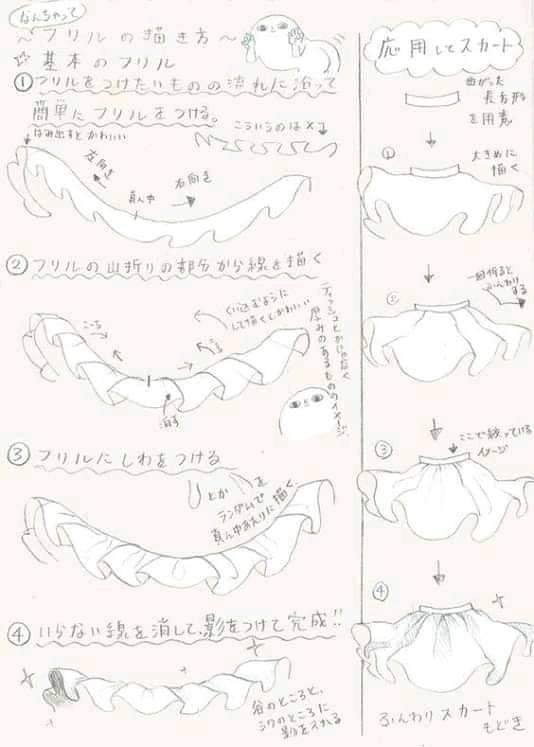 なんちゃって
～フリルの描き方～
☆基本のフリル
①フリルをつけたいものの流れに沿って
簡単にフリルをつける。
はみ出すとかわいい
こういうのは×
左向き
真ん中
右向き
②フリルの山折りの部分から線を描く
くい込むように
して描くとかわいい
ティッシュとかじゃなく
厚みのあるもののイメージ
こっち
消す
③フリルにしわをつける
とか を
ランダムで
真ん中あたりに描く。
④いらない線を消して、影をつけて完成!!
谷のところと、
シワのところに
影を入れる
応用してスカート
曲がった
長方形
を用意
①
大きめに
描く
②
一回折ると
ふんわり
する
③
ここで絞っている
イメージ
④
ふんわりスカート
もどき